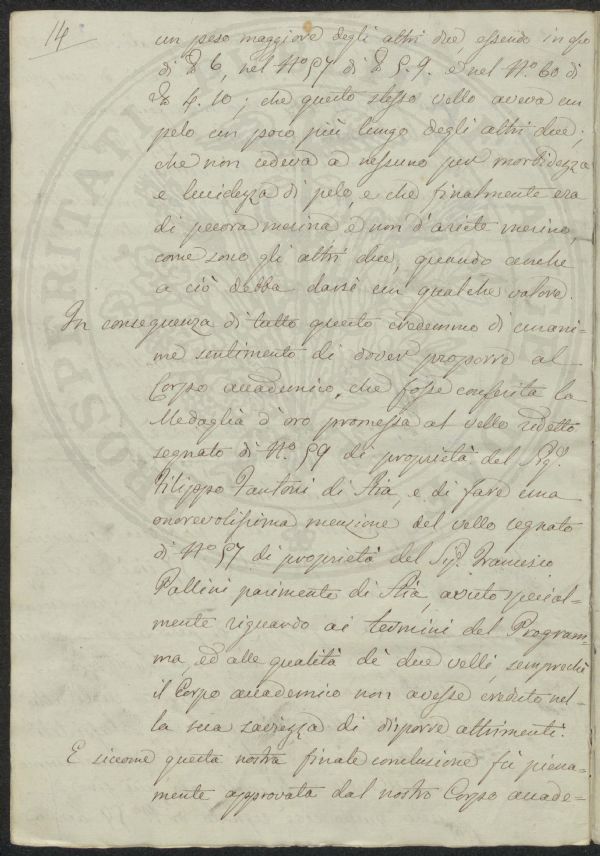 14
un peso maggiore degli altri due, essendo in qto
di ℔ 6, nel No 57 di ℔ 5. 9. e nel No. 60 di
℔ 4. 10; che questo stesso vello aveva un
pelo un poco più lungo degli altri due;
che non cedeva a nessuno per morbidezza
e lucidezza di pelo, e che finalmente era
di pecora merina e non d'ariete merino,
come sono gli altri due, quando anche
a ciò debba darsi un qualche valore.
In conseguenza di tutto questo credemmo di unani-
me sentimento di dover proporre al
Corpo accademico, che fosse conferita la
Medaglia d'oro promessa al vello ridetto
segnato di No. 59 di proprietà del Sigr.
Filippo Tantoni di Stia, e di fare una
onorevolissima menzione del vello segnato
di No 57 di proprietà del Sigr. Francesco
Pallini parimente di Stia, avuto special-
mente riguardo ai termini del Program-
ma, ed alle qualità de due velli, sempreché
il Corpo accademico non avesse creduto nel-
la sua saviezza di disporre altrimenti.
E siccome questa nostra finale conclusione fù piena-
mente approvata dal nostro Corpo accade-
PROSPERITATI